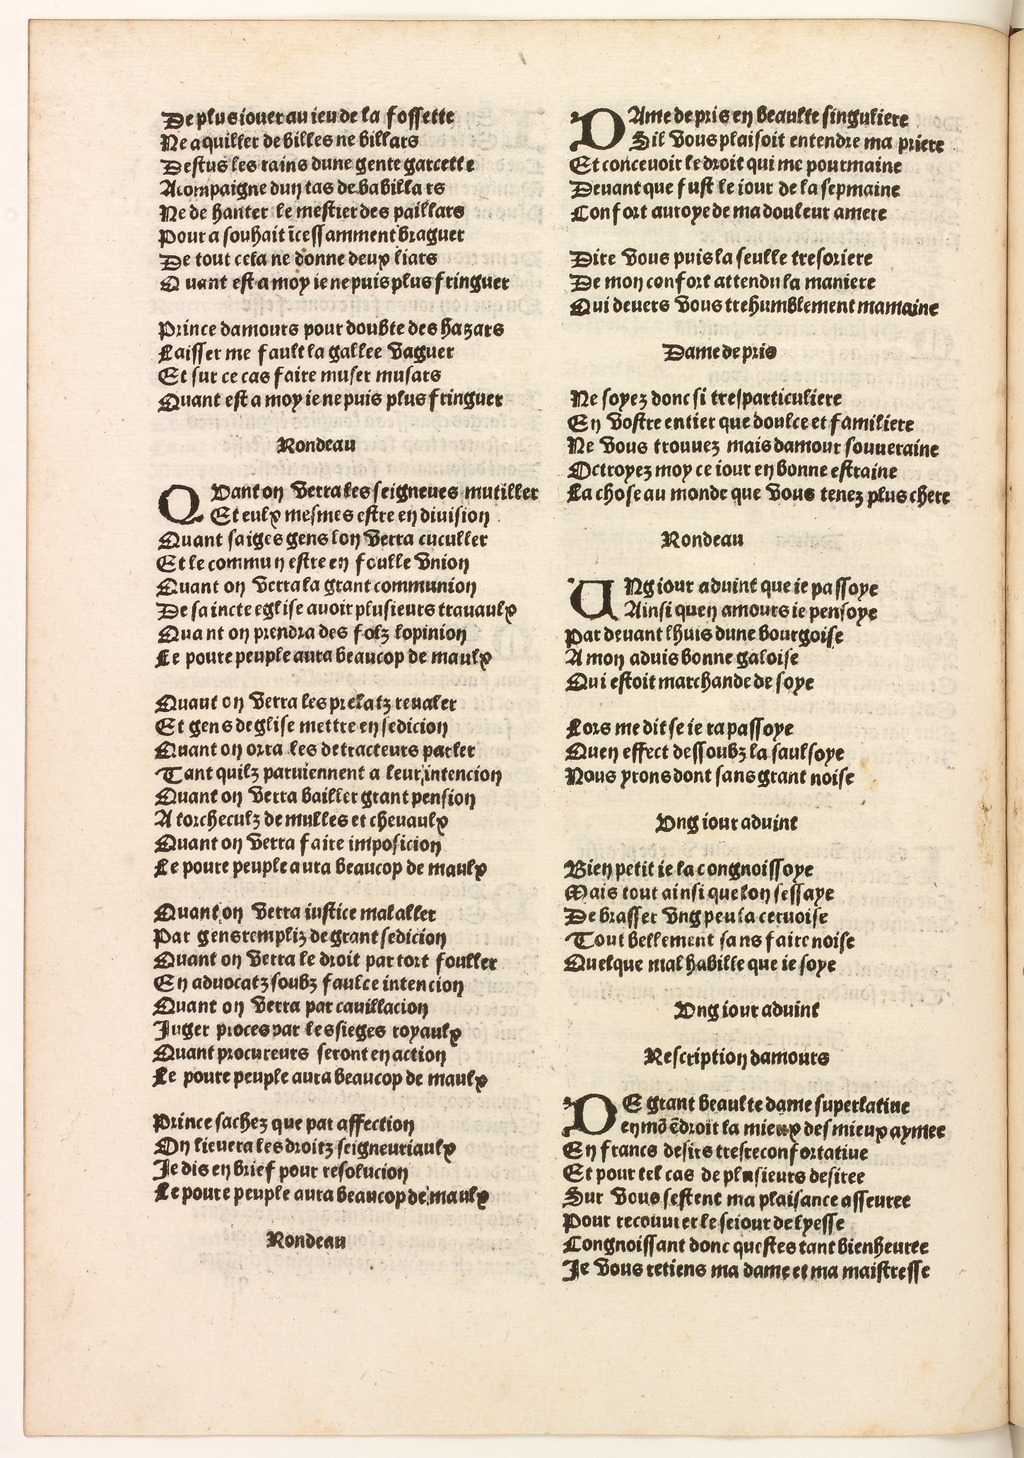 De plus iouer au ieu de la fossette
Ne a quiller de billes ne billars
Dessus les rains dune gente garcette
Acompaigne dun tas de babillars
Ne de hanter le mestier des paillars
Pour a souhait īcessamment braguer
De tout cela ne donne deux liars
Quant est a moy ie ne puis plus fringuer
Prince damours pour doubte des hazars
Laisser me fault la gallee vaguer
Et sur ce cas faire muser musars
Quant est a moy ie ne puis plus fringuer
Rondeau
Quant on verra les seigneurs mutiller
Et eulx mesmes estre en division
Quant saiges gens lon verra cuculler
Et le commun estre en foulle vnion
Quant on verra la grant communion
De saincte eglise avoir plusieurs travaulx
Quant on prendra des folz lopinion
Le poure peuple aura beaucop de maulx
Quant on verra les prelatz reualer
Et gens deglise mettre en sedicion
Quant on orra les detracteurs parler
Tant quilz paruiennent a leur intencion
Quant on verra bailler grant pension
A torcheculz de mulles et cheuaulx
Quant on verra faire imposicion
Le poure peuple aura beaucop de maulx
Quant on verra iustice mal aller
Par gens rempliz de grant sedicion
Quant on verra le droit par tort fouller
En advocatz soubz faulce intencion
Quant on verra par cauillacion
Juger proces par les sieges royaulx
Quant procureurs seront en action
Le poure peuple aura beaucop de maulx
Prince sachez que par affection
On lieuera les droitz seigneuriaulx
Je dis en brief pour resolucion
Le poure peuple aura beaucop de maulx
Rondeau
DAme de pris en beaulte singuliere
Sil vous plaisoit entendre ma priere
Et conceuoir le droit qui me pourmaine
Deuant que fust le iour de la sepmaine
Confort auroye de ma douleur amere
Dire vous puis la seulle tresoriere
De mon confort attendu la maniere
Qui deuers vous trehumblement mamaine
Dame de pris
Ne soyez donc si tresparticuliere
En vostre entier que doulce et familiere
Ne vous trouuez mais damour souueraine
Octroyez moy ce iour en bonne estraine
La chose au monde que vous tenez plus chere
Rondeau
UNg iour aduint que ie passoye
Ainsi quen amours ie pensoye
Par deuant lhuis dune bourgoise
A mon aduis bonne galoise
Qui estoit marchande de soye
Lors me dit se ie rapassoye
Quen effect dessoubz la saulsoye
Nous yrons dont sans grant noise
Vng iour aduint
Bien petit ie la congnoissoye
Mais tout ainsi que lon sessaye
De brasser vng peu la ceruoise
Tout bellement sans faire noise
Quelque mal habille que ie soye
Vng iour aduint
Rescription damours
DE grant beaulte dame superlatiue
en mō ēdroit la mieux des mieux aymee
En francs desirs tresreconfortatiue
Et pour tel cas de plusieurs desiree
Sur vous sestent ma plaisance asseuree
Pour recouurer le seiour de lyesse
Congnoissant donc questes tant bienheuree
Je vous retiens ma dame et ma maistresse